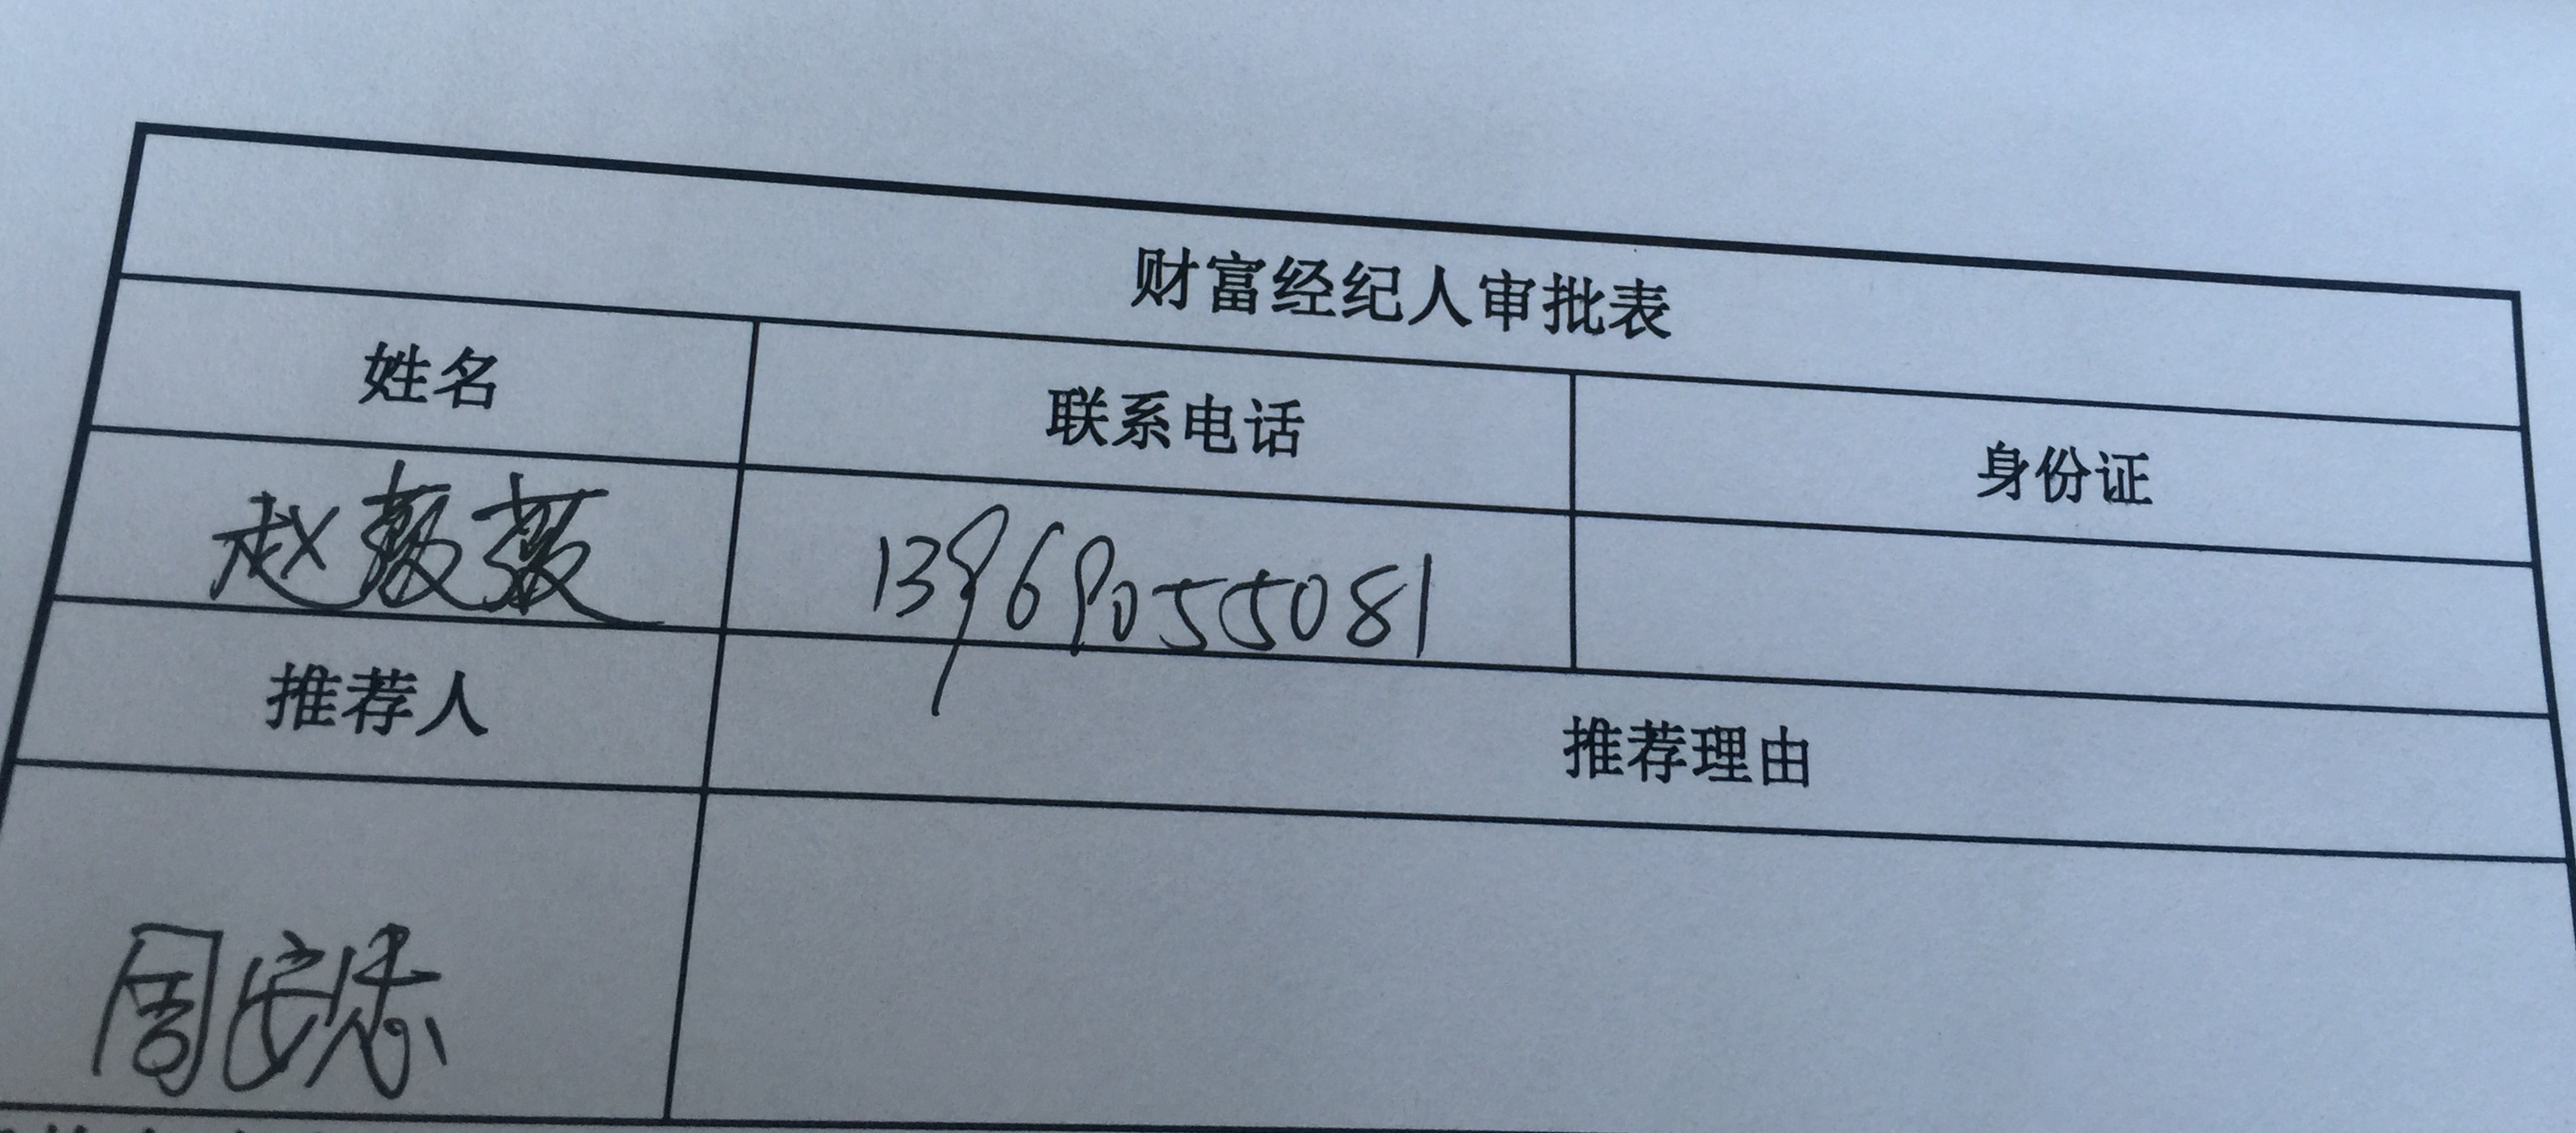 财富经纪人审批表
姓名 联系电话 身份证
赵薇薇 13969055081
推荐人 推荐理由
周安